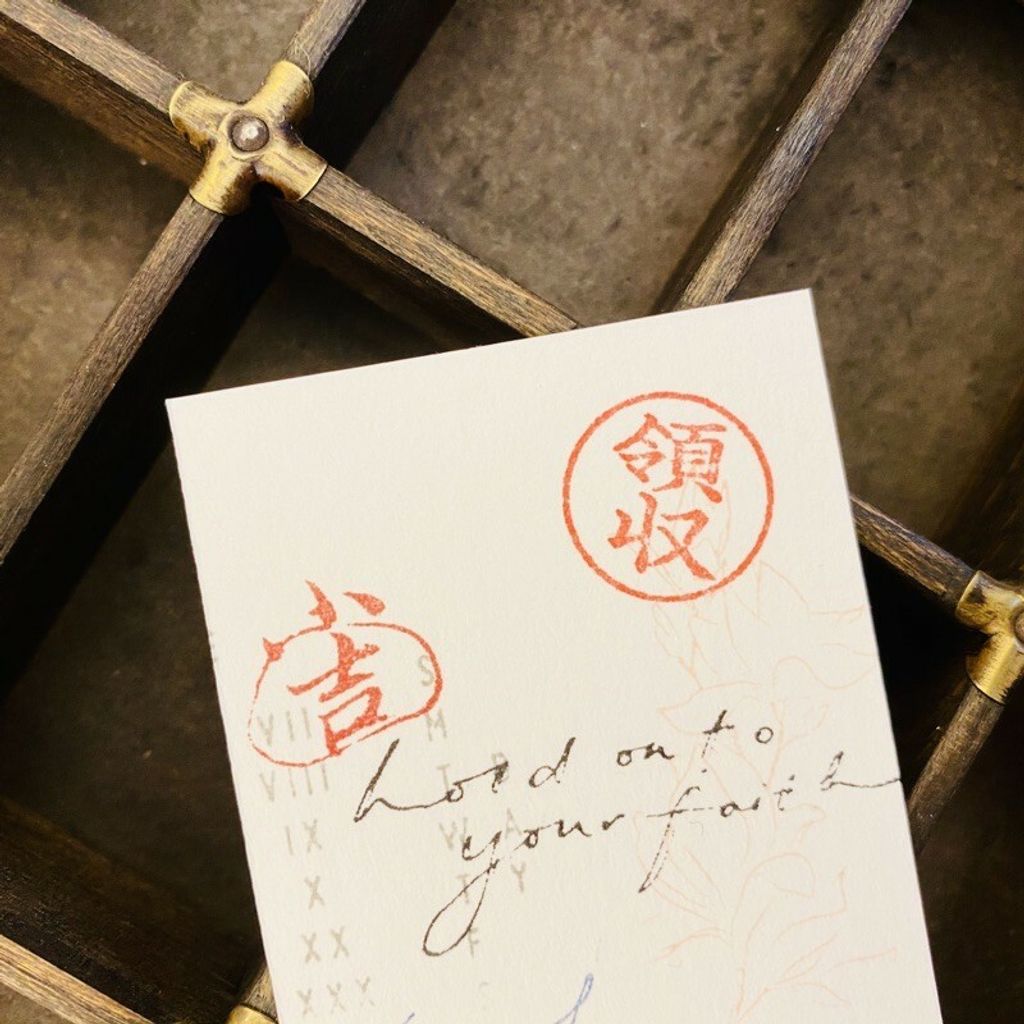 領
収
小
吉
S
VII M
VIII T B
IX W A
X T Y
XX F
XXX
hold on to
your faith